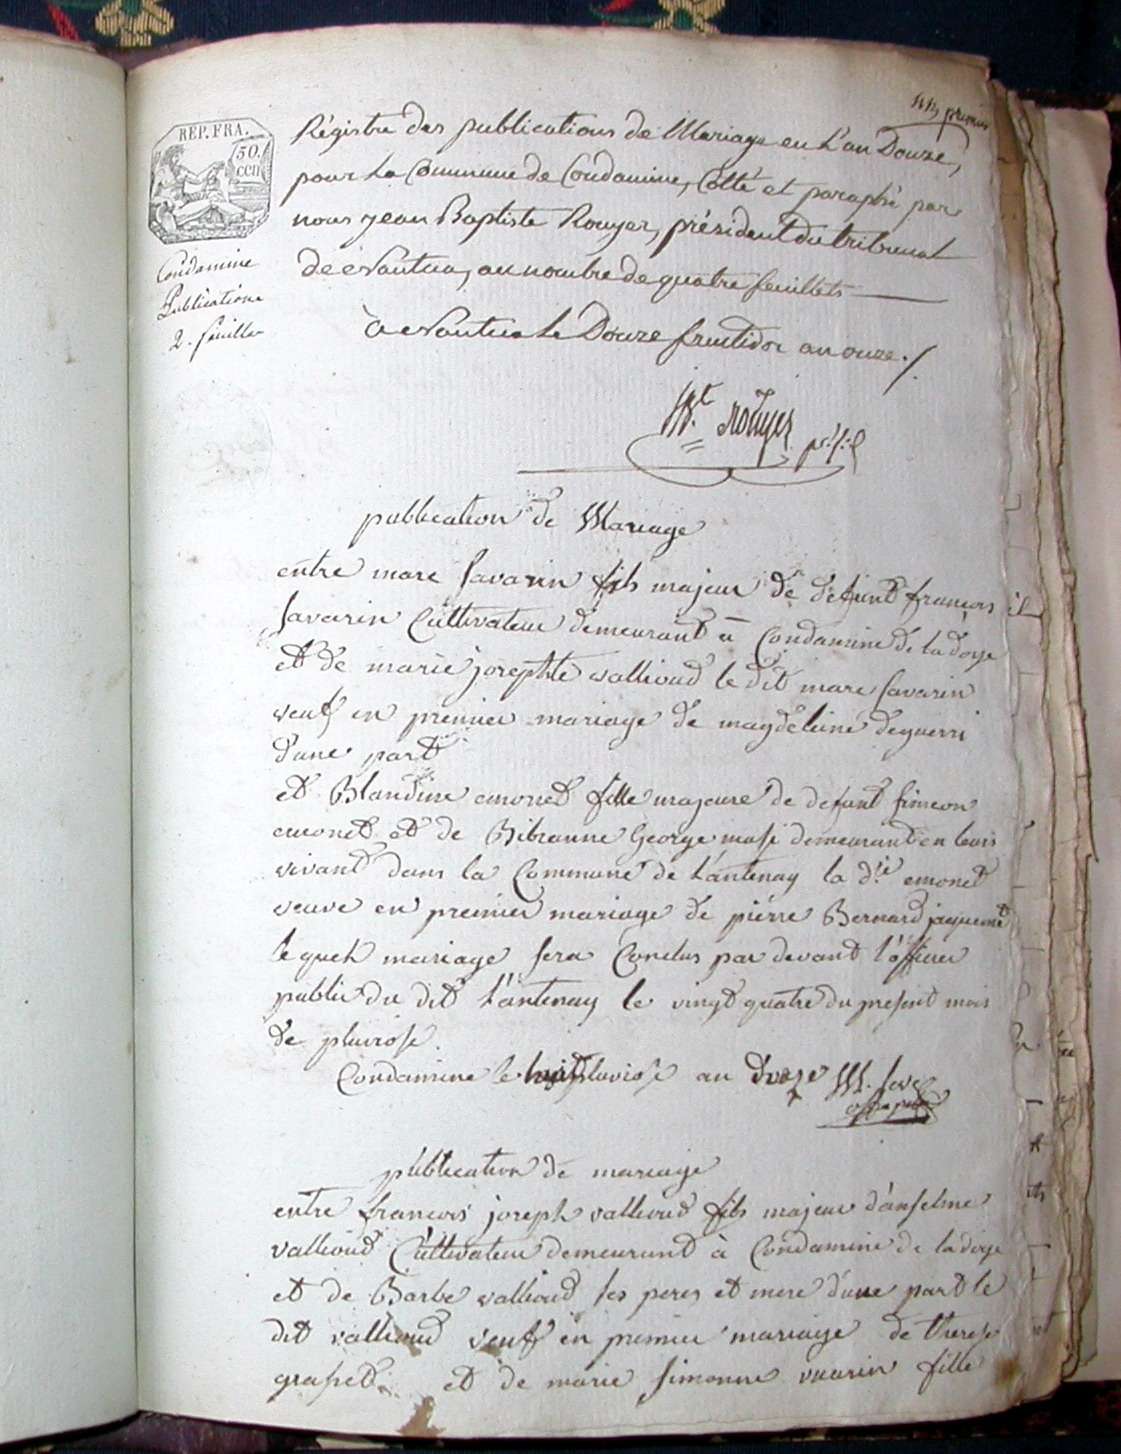 REP. FRA.
50.
CEN
Régistre des publications de Mariage en L'an Douze,
pour La Commune de Condamine, Cotté et paraphé par
nous jean Baptiste Rouyer, président du tribunal
de Nantua, au nombre de quatre feuillets
à Nantua Le Douze fructidor an onze./
Condamine
Publications
2. feuilles
Rouyer
publication de Mariage
entre marc savarin fils majeur de defunt francois
savarin Cultivateur demeurant à Condamine de la doye
et de marie josephte vallioud le dit marc savarin
veuf en premier mariage de magdeleine deguerri
d'une part
et Blandine emonet fille majeure de defunt simeon
emonet et de Bibianne George demeurant en leurs
vivant dans la Commune de Lantenay la d.te emonet
veuve en premier mariage de piérre Bernard jaquemet
le quel mariage sera Conclus par devant l'officier
public du dit Lantenay le vingt quatre du present mois
de pluviose.
Condamine le huit pluviose an douze
publication de mariage
entre francois joseph vallioud fils majeur d'anselme
vallioud Cultivateur demeurant à Condamine de la doye
et de Barbe vallioud ses peres et mere d'une part le
dit vallioud veuf en premier mariage de therese
grasset et de marie simonne fille